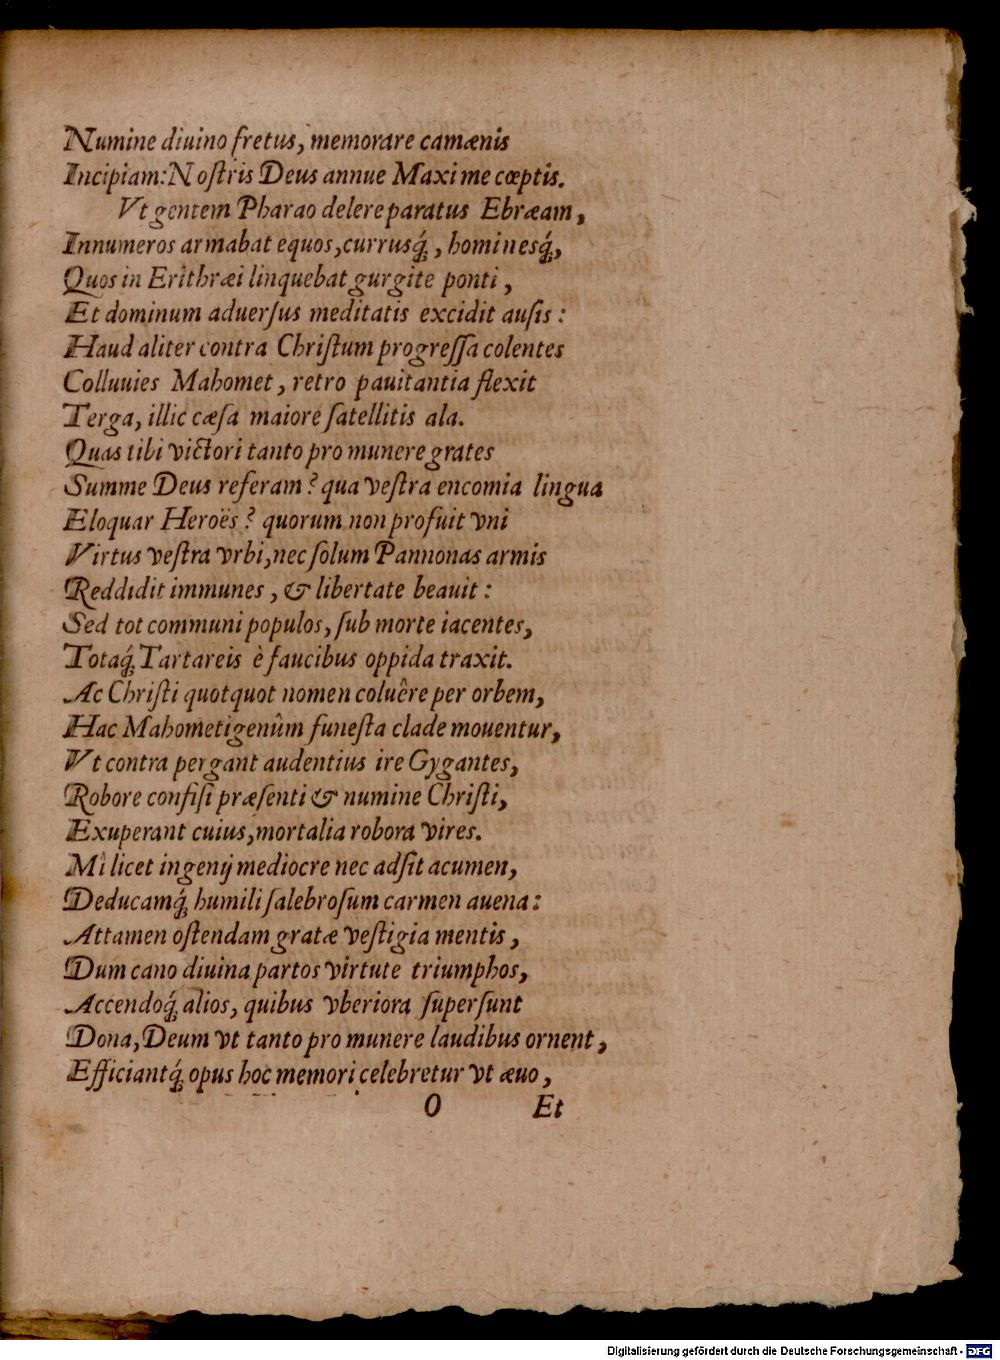 Numine diuino fretus, memorare camænis
Incipiam: Noſtris Deus annue Maxime cœptis.
Vt gentem Pharao delere paratus Ebræam,
Innumeros armabat equos, currusq́, hominesq́,
Quos in Erithræi linquebat gurgite ponti,
Et dominum aduerſus meditatis excidit auſis:
Haud aliter contra Chriſtum progreſſa colentes
Colluuies Mahomet, retro pauitantia flexit
Terga, illic cæſa maiore ſatellitis ala.
Quas tibi victori tanto pro munere grates
Summe Deus referam? qua veſtra encomia lingua
Eloquar Heroës? quorum non profuit vni
Virtus veſtra vrbi, nec ſolum Pannonas armis
Reddidit immunes, & libertate beauit:
Sed tot communi populos, ſub morte iacentes,
Totaq́ Tartareis è faucibus oppida traxit.
Ac Chriſti quotquot nomen coluêre per orbem,
Hac Mahometigenûm funeſta clade mouentur,
Vt contra pergant audentius ire Gygantes,
Robore confiſi præſenti & numine Chriſti,
Exuperant cuius, mortalia robora vires.
Mî licet ingenij mediocre nec adſit acumen,
Deducamq́ humili ſalebroſum carmen auena:
Attamen oſtendam gratæ veſtigia mentis,
Dum cano diuina partos virtute triumphos,
Accendoq́ alios, quibus vberiora ſuperſunt
Dona, Deum vt tanto pro munere laudibus ornent,
Efficiantq́ opus hoc memori celebretur vt æuo,
O Et
Digitalisierung gefördert durch die Deutsche Forschungsgemeinschaft - DFG